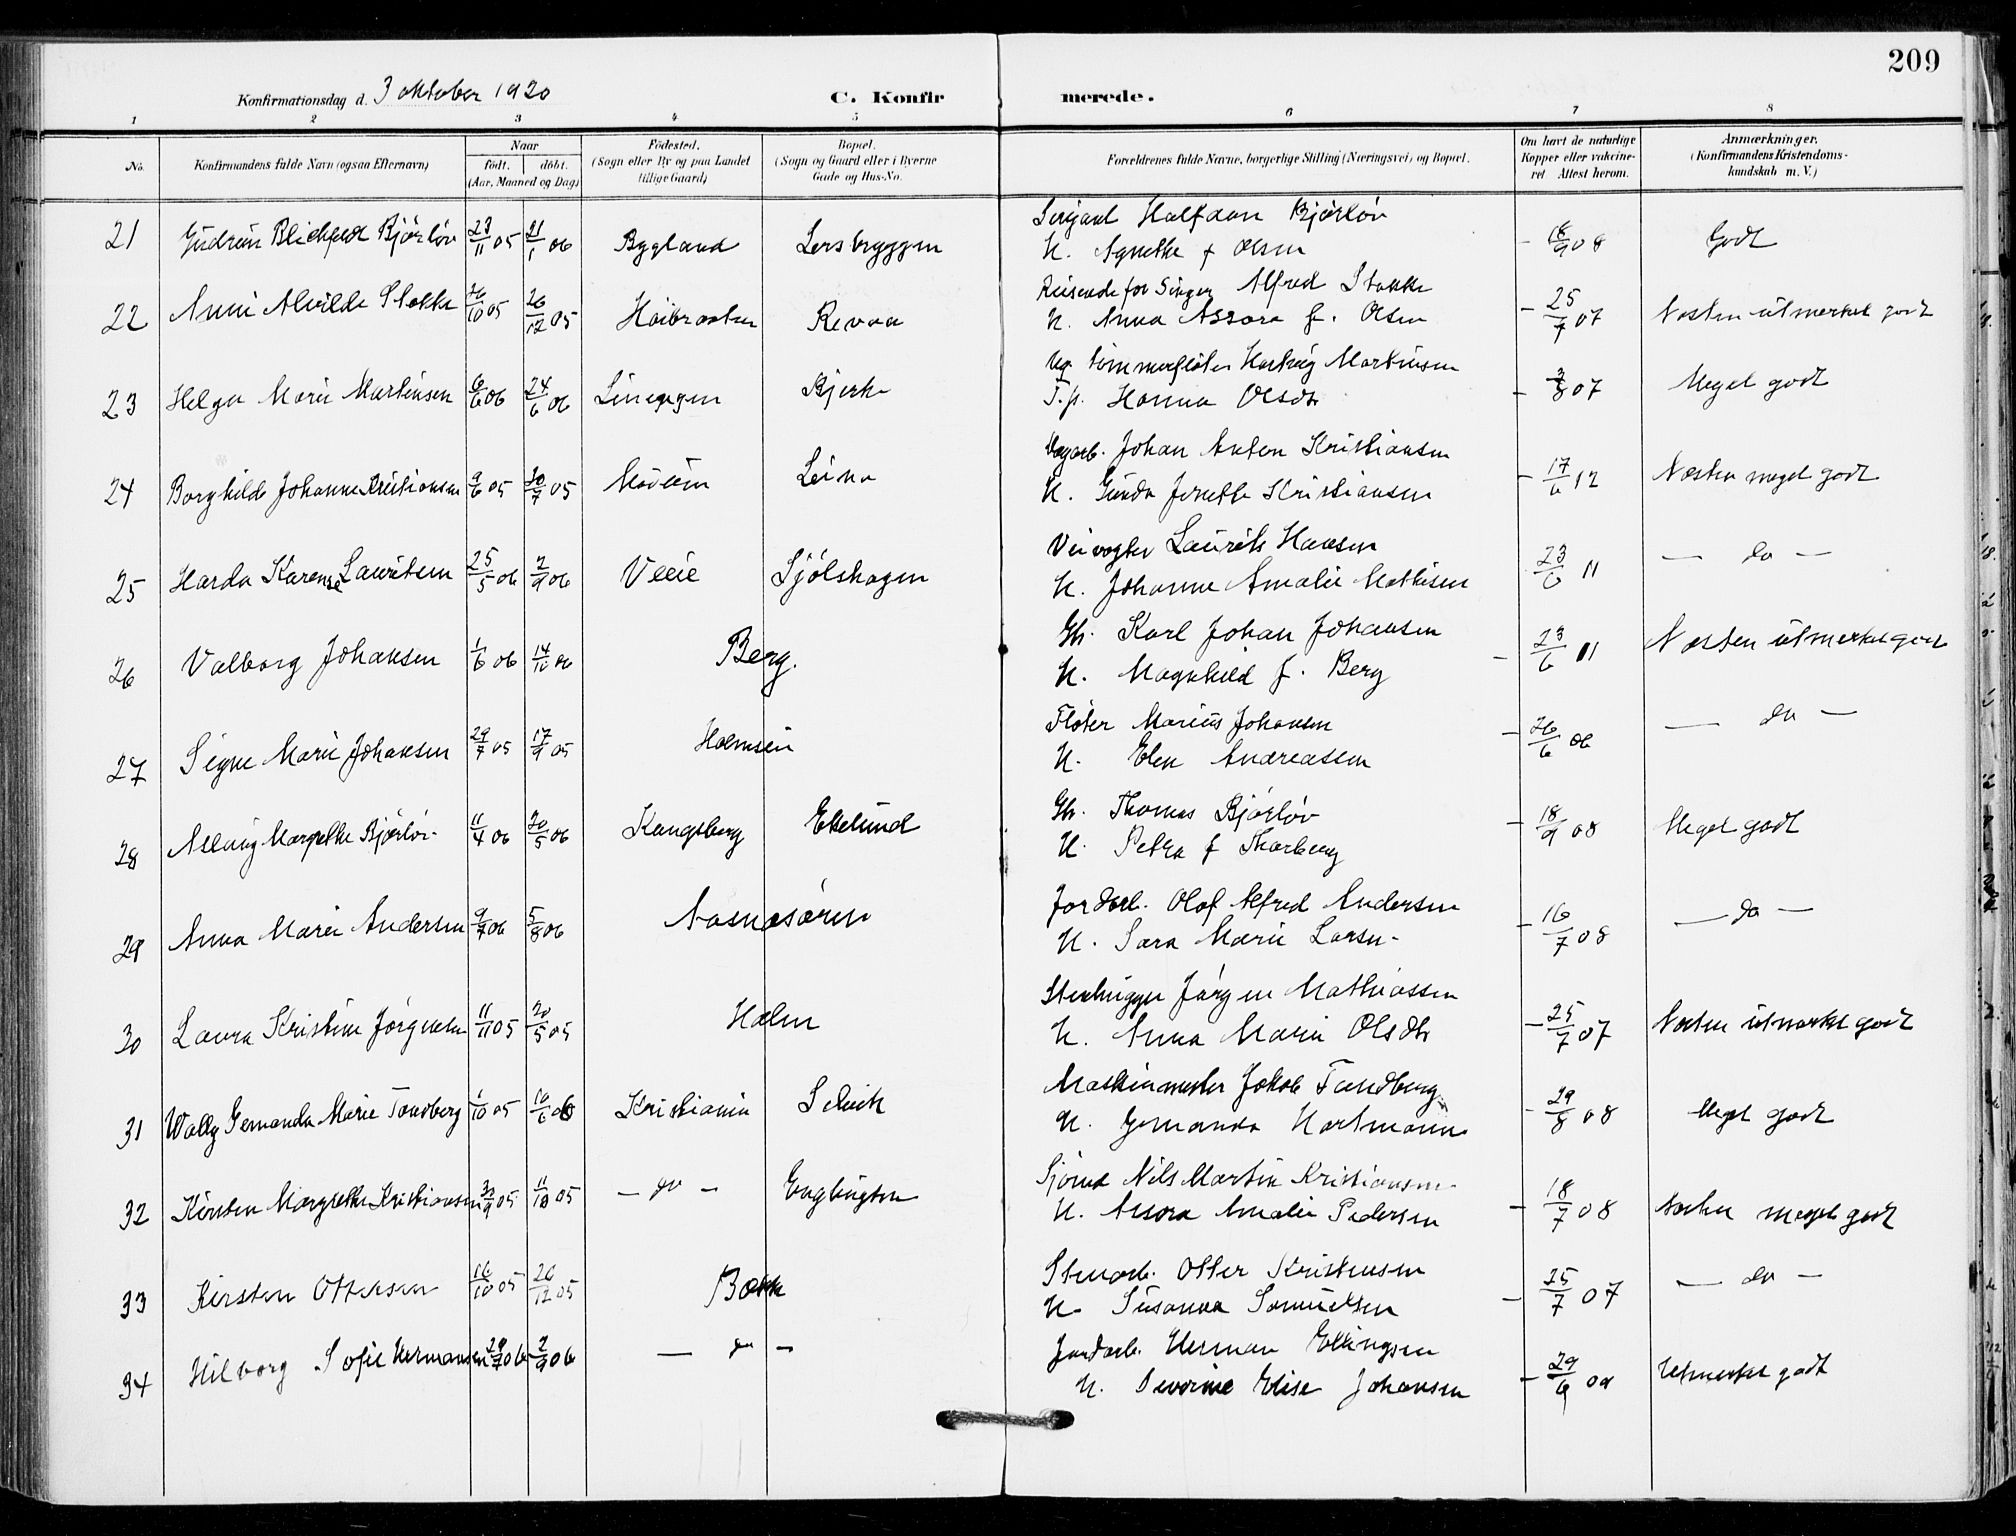 209
Konfirmationsdag d. 3 oktober 1920
C. Konfirmerede.
1 2 3 4 5 6 7 8
No. | Konfirmandens fulde Navn (ogsaa Efternavn) | Naar født. døbt. (Aar, Maaned og Dag) | Fødested. (Sogn eller By og paa Landet tillige Gaard) | Bopæl. (Sogn og Gaard eller i Byerne Gade og Hus-No. | Forældrenes fulde Navne, borgerlige Stilling (Næringsvei) og Bopæl. | Om havt de naturlige Kopper eller vakcineret Attest herom. | Anmærkninger. (Konfirmandens Kristendomskundskab m. V.)
21 Gudrun Blichfeldt Bjørløv 23/11 05 21/1 06 Bygland Lersbryggen Serjant Halfdan Bjørløv - 18/9 08 Godt
H. Agnethe f Olsen
22 Anni Alvilde Stokke 26/10 05 26/12 05 Høibraaten Revaa Reisende for Singer Alfred Stokke - 25/7 07 Næsten utmerket godt
H. Anna Assora f. Olsen
23 Helga Marie Martinsen 6/6 06 24/6 06 Bjerke Ug. tømmerfløter Hartvig Martinsen - 3/8 07 Meget godt
T.p. Hanna Olsdtr
24 Borghilde Johanne Kristiansen 9/6 05 30/7 05 Leina Johan Anton Kristiansen - 17/6 12 Næsten meget godt
H. Gunda Jonette Kristiansen
25 Harda Karense Lauritsen 25/5 06 2/9 06 Sjølshagen Veivogter Laurits Hansen 23/6 11 — do —
H. Johanne Amalie Mathisen
26 Valborg Johansen 1/6 06 14/10 06 Berg. Gb. Karl Johan Johansen - 23/6 11 Næsten utmerket godt
H. Magnhild f. Berg
27 Signe Marie Johansen 29/7 05 17/9 05 Holmsin Fløter Marius Johansen - 26/6 06 — do —
H. Elen Andreassen
28 Aslaug Margrethe Bjørløv 11/4 06 20/5 06 Kongsberg Ekelund Gb. Thomas Bjørløv - 18/9 08 Meget godt
H. Petra f Thorberg
29 Anna Marie Andersen 9/7 06 5/8 06 Aasnæsøren Jordarb. Olaf Alfred Andersen - 16/7 08 — do —
H. Sara Marie Larsen
30 Laura Kristine Jørgensen 11/11 05 20/5 05 Holm Stenhugger Jørgen Mathiassen - 25/7 07 Næsten utmerket godt
H. Anna Marie Olsdtr
31 Wally Gemanda Marie Tandberg 1/10 05 10/6 06 Kristiania Selvik Maskinmester Jakob Tandberg - 29/8 08 Meget godt
H. Gemanda Hartmann
32 Kirsten Margrethe Kristiansen 30/9 05 11/10 05 — do — Engbugten Sjømd Nils Martin Kristiansen - 18/7 08 Næsten meget godt
H. Assora Amalie Pedersen
33 Kirsten Ottersen 16/10 05 26/12 05 Bakke Stenarb. Otter Kristensen - 25/7 07 — do —
H. Susanna Samuelsen
34 Hilborg Sofie Hermansen 29/7 06 2/9 06 — do — Jordarb. Herman Ellingsen - 29/6 09 Utmerket godt
H. Severine Elise Johansen